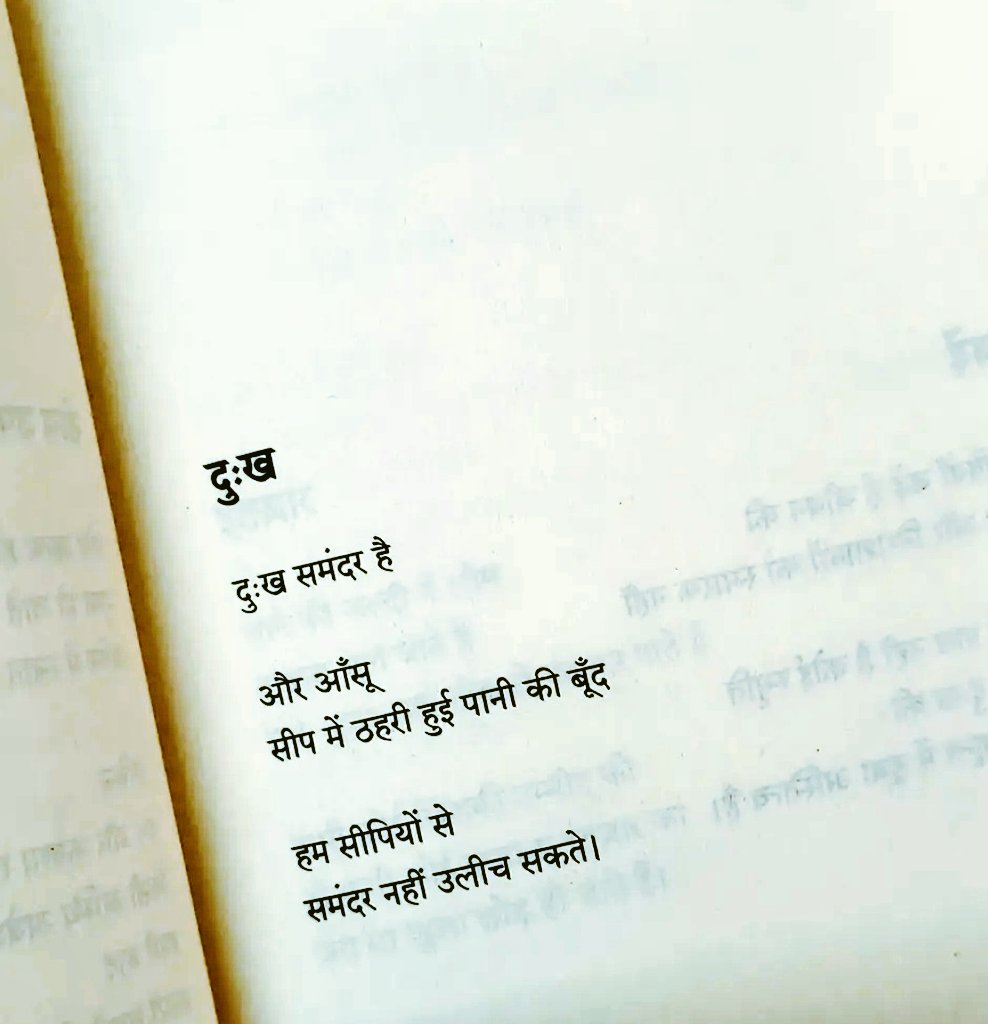 दुःख
दुःख समंदर है
और आँसू
सीप में ठहरी हुई पानी की बूँद
हम सीपियों से
समंदर नहीं उलीच सकते।